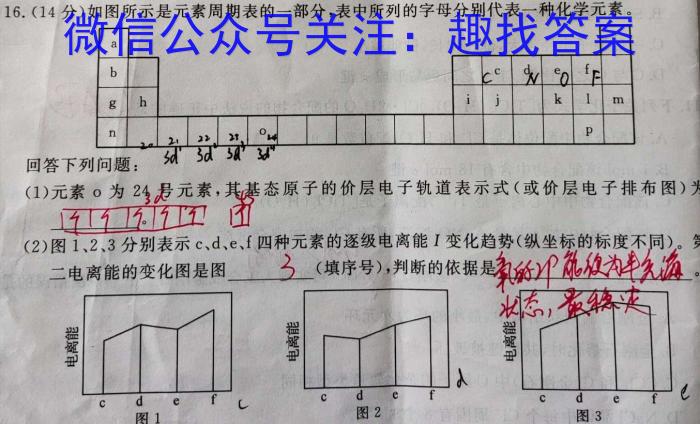 16.(14分)如图所示是元素周期表的一部分,表中所列的字母分别代表一种化学元素。
微信公众号关注：趣找答案
a
b c d e f
C N O F
g h i j k l m
n o p
20 21 22 23 24
3d¹ 3d² 3d³ 3d⁴
回答下列问题:
(1)元素 o 为 24 号元素,其基态原子的价层电子轨道表示式(或价层电子排布图)为
3d 4s
。
(2)图1、2、3分别表示 c、d、e、f 四种元素的逐级电离能 I 变化趋势(纵坐标的标度不同)。第
二电离能的变化图是图 3 (填序号),判断的依据是 氧的2P能级为半充满
状态，最稳定 。
电离能 电离能 电离能
c d e f c d e f c d e f
图1 图2 图3